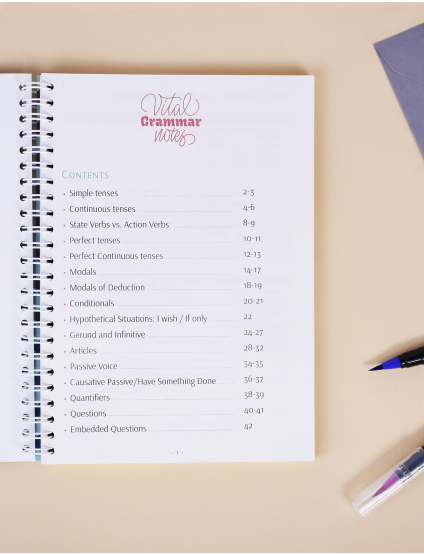 Vital
Grammar
notes
CONTENTS
• Simple tenses 2-3
• Continuous tenses 4-6
• State Verbs vs. Action Verbs 8-9
• Perfect tenses 10-11
• Perfect Continuous tenses 12-13
• Modals 14-17
• Modals of Deduction 18-19
• Conditionals 20-21
• Hypothetical Situations: I wish / If only 22
• Gerund and Infinitive 24-27
• Articles 28-32
• Passive Voice 34-35
• Causative Passive/Have Something Done 36-37
• Quantifiers 38-39
• Questions 40-41
• Embedded Questions 42
- 1 -